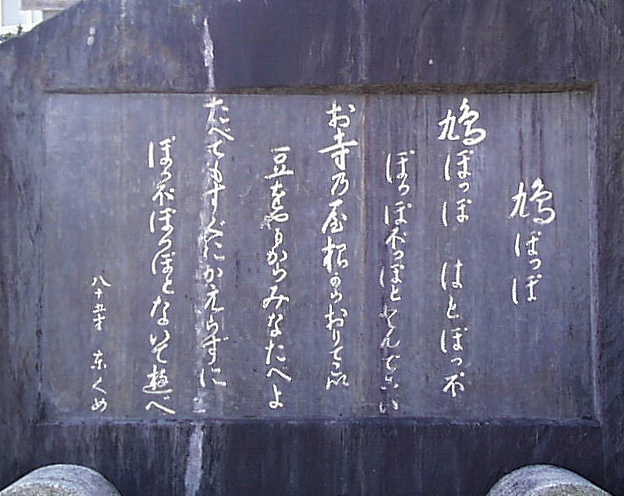 鳩ぽっぽ
鳩ぽっぽ はとぽっポ
ぽっぽポっぽと とんでこい
お寺乃屋根からおりてこい
豆をやるからみなたべよ
たべてもすぐにかえらずに
ぽっポぽっぽとないて遊べ
八十五才 東くめ